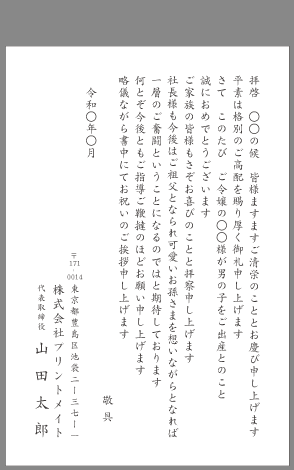 拝啓　〇〇の候　皆様ますますご清栄のこととお慶び申し上げます
平素は格別のご高配を賜り厚く御礼申し上げます
さて　このたび　ご令嬢の〇〇様が男の子をご出産とのこと
誠におめでとうございます
ご家族の皆様もさぞお喜びのことと拝察申し上げます
社長様も今後はご祖父となられ可愛いお孫さまを想いながらとなれば
一層のご奮闘ということになるのではと期待しております
何とぞ今後ともご指導ご鞭撻のほどお願い申し上げます
略儀ながら書中にてお祝いのご挨拶申し上げます
敬具
令和〇年〇月
〒171-0014 東京都豊島区池袋二ー三七ー一
株式会社プリントメイト
代表取締役　山田太郎